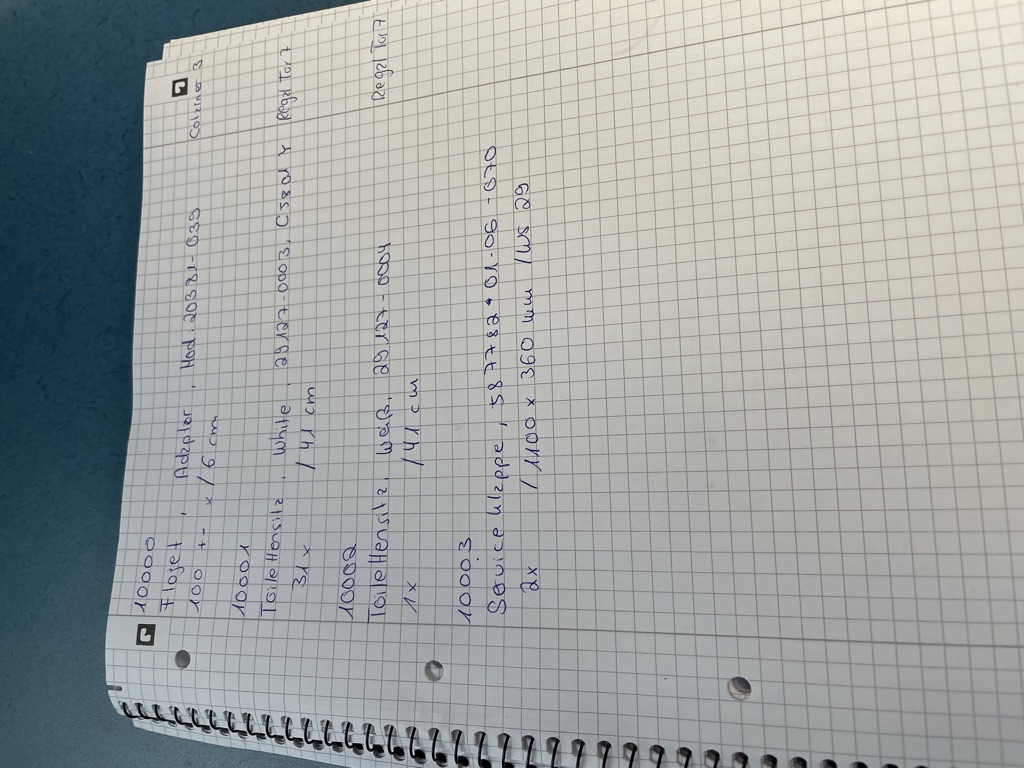 10000
Flojet, Adapter, Mod. 20381-039 Container 3
100 +- x/6 cm
10001
Toilettensitz, White, 29127-0003, C5804 Regal Tor 7
31x /41 cm
10002
Toilettensitz, Weiß, 29127-0004 Regal Tor 7
1x /41 cm
10003
Service klappe, 587782 * 01-06-670
2x /1100 x 360 mm /WS 29